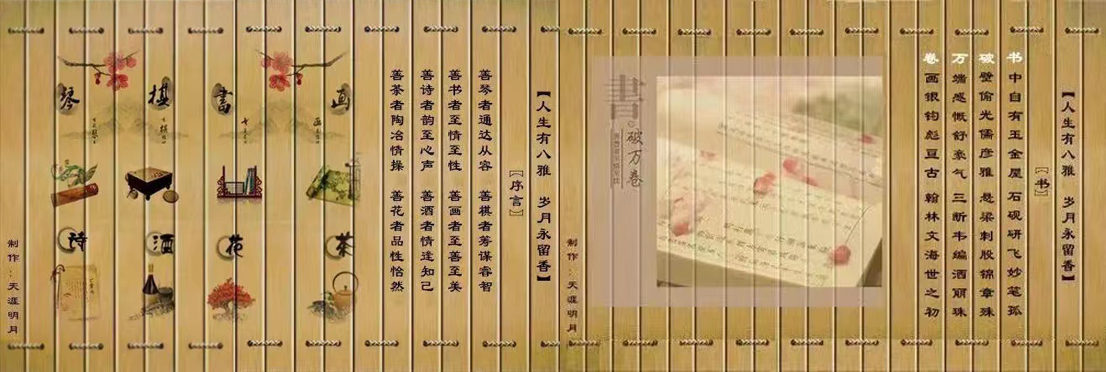 【人生有八雅 岁月永留香】
［序言］
善琴者通达从容 善棋者筹谋睿智
善书者至情至性 善画者至善至美
善诗者韵至心声 善酒者情逢知己
善茶者陶冶情操 善花者品性怡然
琴 棋 書 画
诗 酒 花 茶
制作：天涯明月
【人生有八雅 岁月永留香】
［书］
书中自有玉金屋 石砚研飞妙笔孤
破壁偷光儒彦雅 悬梁刺股锦章殊
万端感慨舒豪气 三断韦编洒丽珠
卷画银钩彪亘古 翰林文海世之初
書
破万卷
制作：天涯明月